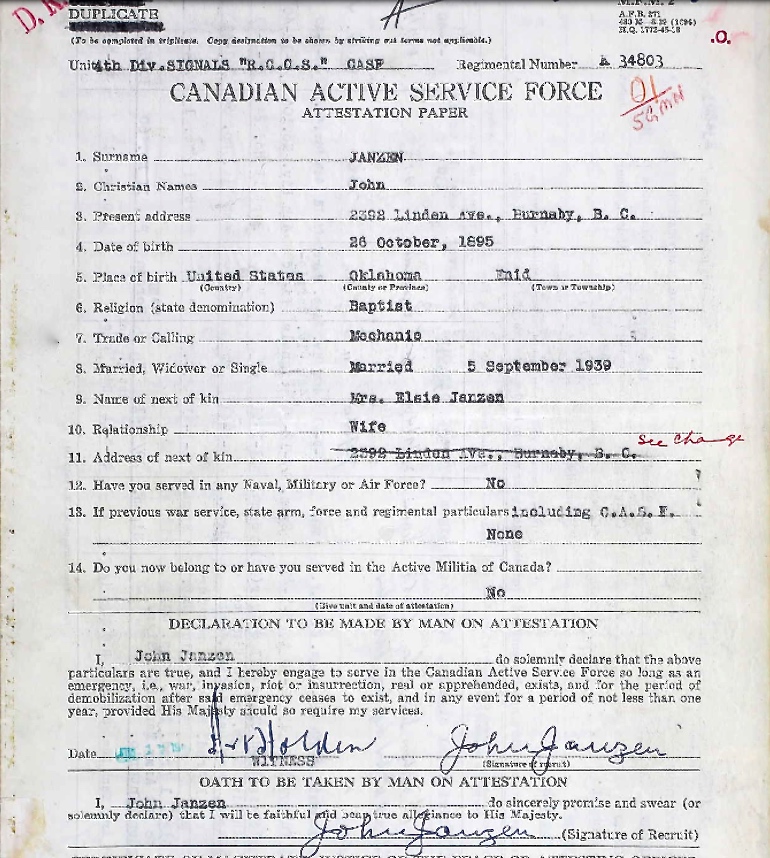 DUPLICATE
A
A.F.B. 271
H.Q. 1772-45-18
(To be completed in triplicate. Copy designation to be shown by striking out terms not applicable.)
.O.
Unit 4th Div.SIGNALS "R.C.C.S." CASF Regimental Number K 34803
CANADIAN ACTIVE SERVICE FORCE
ATTESTATION PAPER
01
SGMN
1. Surname JANZEN
2. Christian Names John
3. Present address 2392 Linden Ave., Burnaby, B. C.
4. Date of birth 26 October, 1895
5. Place of birth United States Oklahoma Enid
(Country) (County or Province) (Town or Township)
6. Religion (state denomination) Baptist
7. Trade or Calling Mechanic
8. Married, Widower or Single Married 5 September 1939
9. Name of next of kin Mrs. Elsie Janzen
10. Relationship Wife
See Change
11. Address of next of kin 2392 Linden Ave., Burnaby, B. C.
12. Have you served in any Naval, Military or Air Force? No
13. If previous war service, state arm, force and regimental particulars including C.A.S.F.
None
14. Do you now belong to or have you served in the Active Militia of Canada?
No
(Give unit and date of attestation)
DECLARATION TO BE MADE BY MAN ON ATTESTATION
I, John Janzen do solemnly declare that the above
particulars are true, and I hereby engage to serve in the Canadian Active Service Force so long as an
emergency, i.e., war, invasion, riot or insurrection, real or apprehended, exists, and for the period of
demobilization after said emergency ceases to exist, and in any event for a period of not less than one
year, provided His Majesty should so require my services.
Date Holden John Janzen
WITNESS (Signature of recruit)
OATH TO BE TAKEN BY MAN ON ATTESTATION
I, John Janzen do sincerely promise and swear (or
solemnly declare) that I will be faithful and bear true allegiance to His Majesty.
John Janzen (Signature of Recruit)